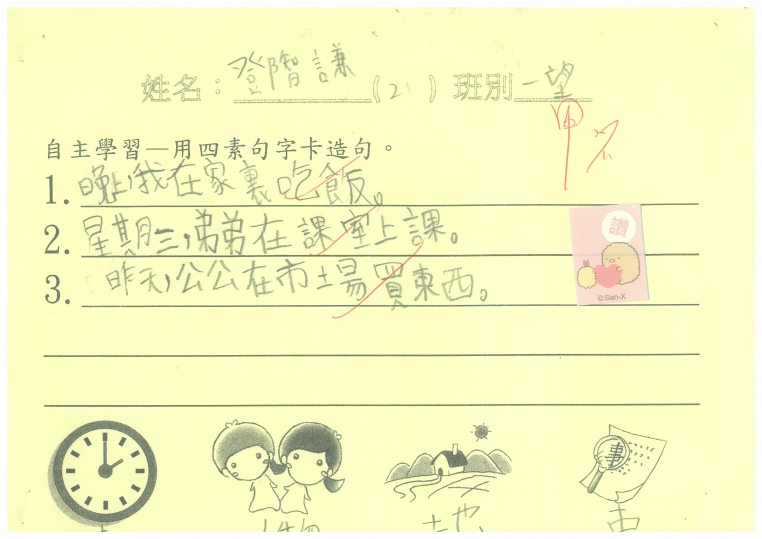 姓名：鄧智謙（2）班別一望
甲
自主學習—用四素句字卡造句。
1. 晚上，我在家裏吃飯。
2. 星期三，弟弟在課室上課。
讚
3. 昨天，公公在市場買東西。
©San-X
事
物
地